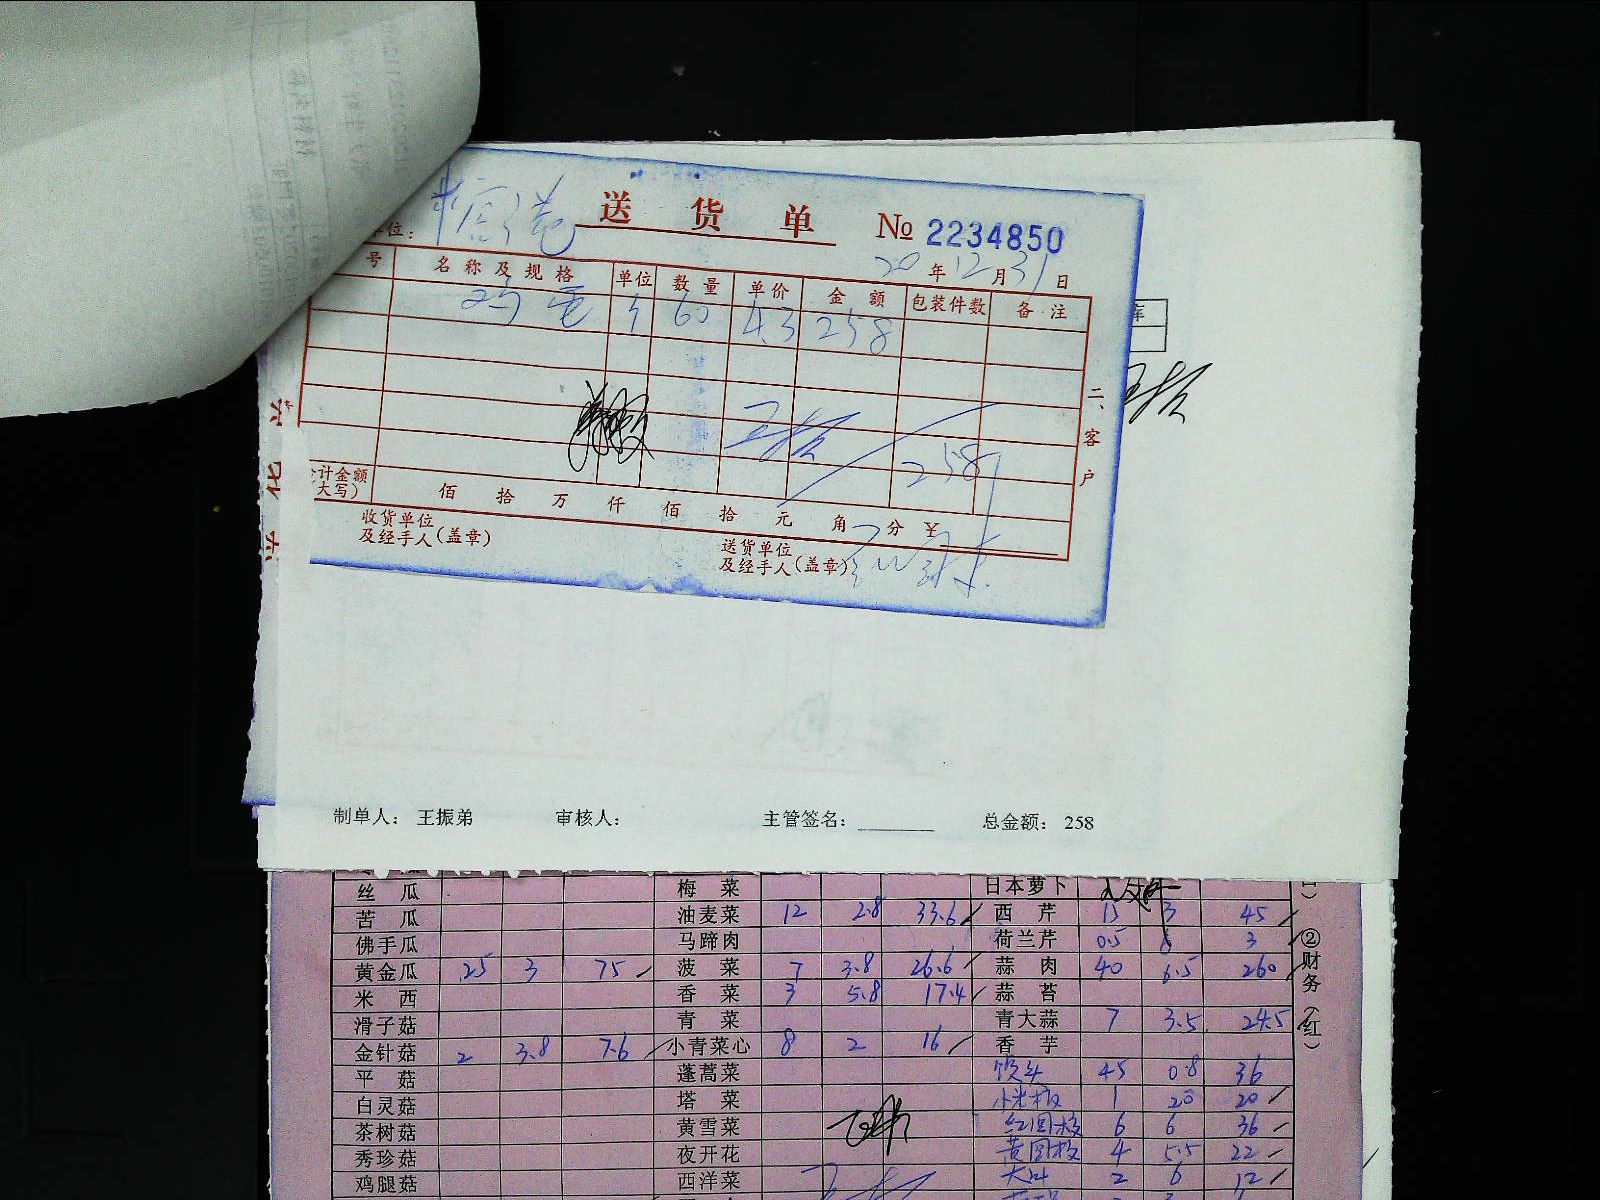 送货单 № 2234850
位：
20年12月31日
号 名称及规格 单位 数量 单价 金额 包装件数 备注
60 4.3 258
258
计金额
(大写) 佰 拾 万 仟 佰 拾 元 角 分 ¥
收货单位
及经手人(盖章)
送货单位
及经手人(盖章)
二、客户
库
制单人： 王振弟 审核人： 主管签名： 总金额： 258
丝瓜 梅菜 日本萝卜
苦瓜 油麦菜 12 2.8 33.6 西芹 15 3 45
佛手瓜 马蹄肉 荷兰芹 0.5 6 3
黄金瓜 25 3 75 菠菜 7 3.8 26.6 蒜肉 40 6.5 260
米西 香菜 3 5.8 17.4 蒜苔
滑子菇 青菜 青大蒜 7 3.5 24.5
金针菇 2 3.8 7.6 小青菜心 8 2 16 香芋
平菇 蓬蒿菜 馒头 45 0.8 36
白灵菇 塔菜 1 20 20
茶树菇 黄雪菜 红圆椒 6 6 36
秀珍菇 夜开花 黄圆椒 4 5.5 22
鸡腿菇 西洋菜 2 6 12
②财务（红）